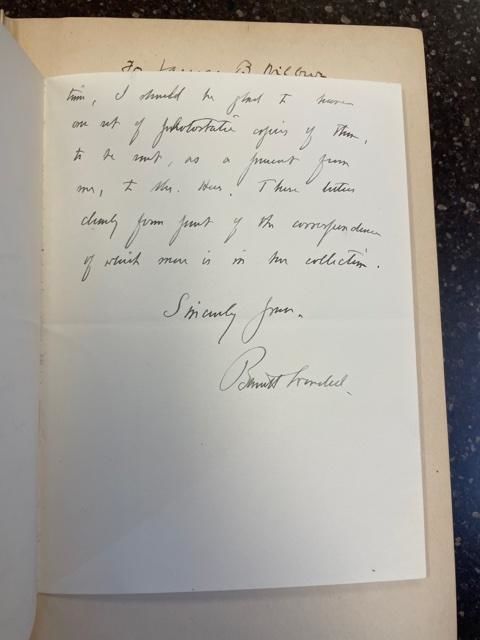 To James B. Wilbur
tion, I should be glad to have
one set of photostatic copies of them,
to be sent, as a present from
me, to Mrs. These letters
clearly form part of the correspondence
of which more is in her collection.
Sincerely yours.
Barrett Wendell.